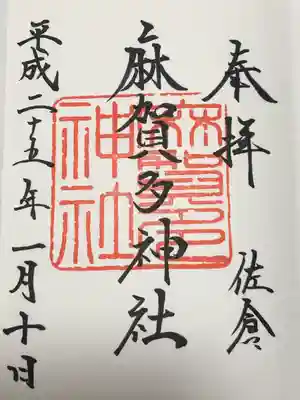 奉拝
佐倉
麻賀多神社
麻賀多
神社
平成二十五年一月十日